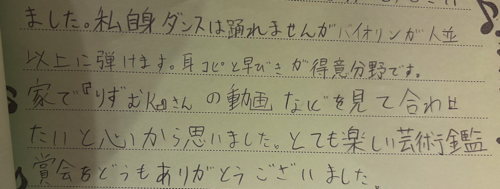 ました。私自身ダンスは踊れませんがバイオリンが人並
以上に弾けます。耳コピと早びきが得意分野です。
家で『りずむKaさんの動画などを見て合わせ
たいと心から思いました。とても楽しい芸術鑑
賞会をどうもありがとうございました。